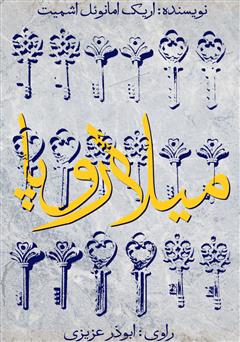 نویسنده: اریک امانوئل اشمیت
میلارپا
راوی: ابوذر عزیزی